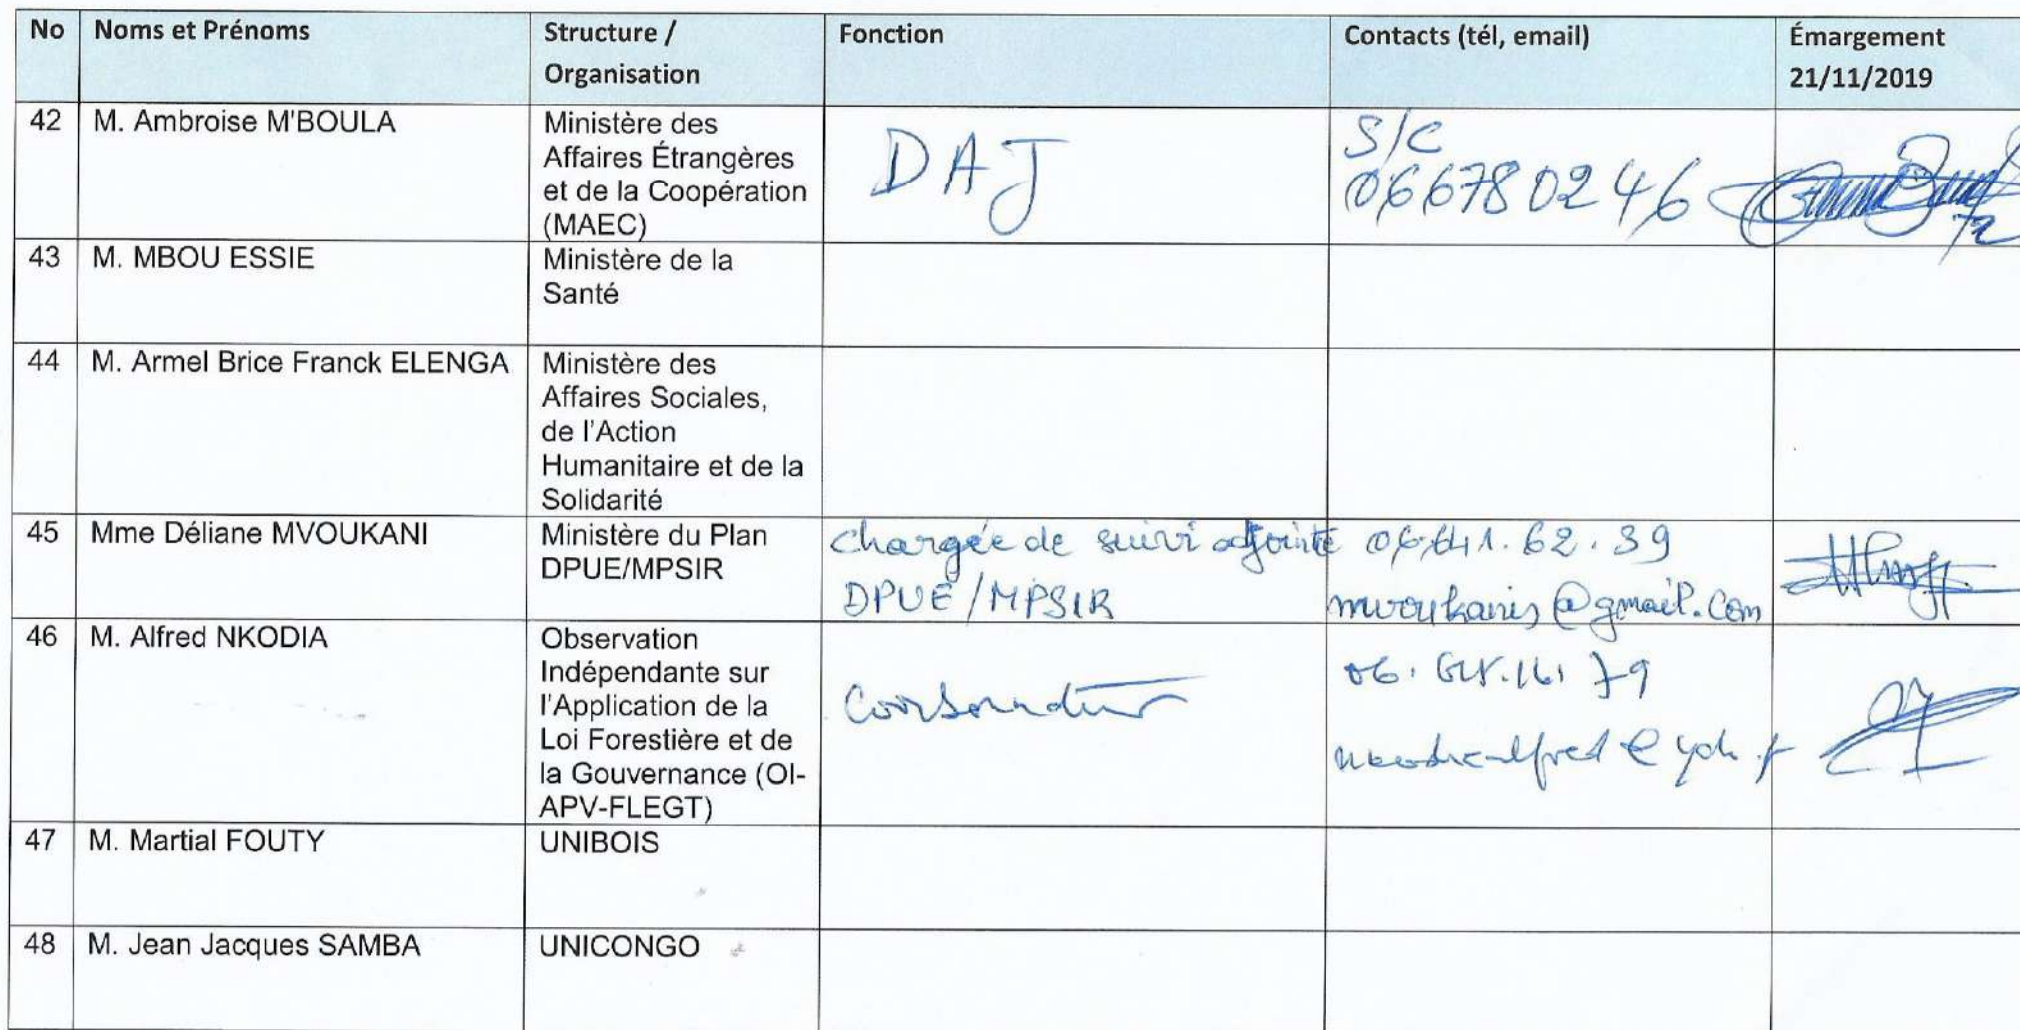 No Noms et Prénoms Structure / Organisation Fonction Contacts (tél, email) Émargement 21/11/2019
42 M. Ambroise M'BOULA
Ministère des
Affaires Étrangères
et de la Coopération
(MAEC)
DAJ
S/C
066780246
43 M. MBOU ESSIE
Ministère de la
Santé
44 M. Armel Brice Franck ELENGA
Ministère des
Affaires Sociales,
de l'Action
Humanitaire et de la
Solidarité
45 Mme Déliane MVOUKANI
Ministère du Plan
DPUE/MPSIR
chargée de suivi adjointe
DPUE/MPSIR
@gmail.com
46 M. Alfred NKODIA
Observation
Indépendante sur
l'Application de la
Loi Forestière et de
la Gouvernance (OI-
APV-FLEGT)
47 M. Martial FOUTY
UNIBOIS
48 M. Jean Jacques SAMBA
UNICONGO